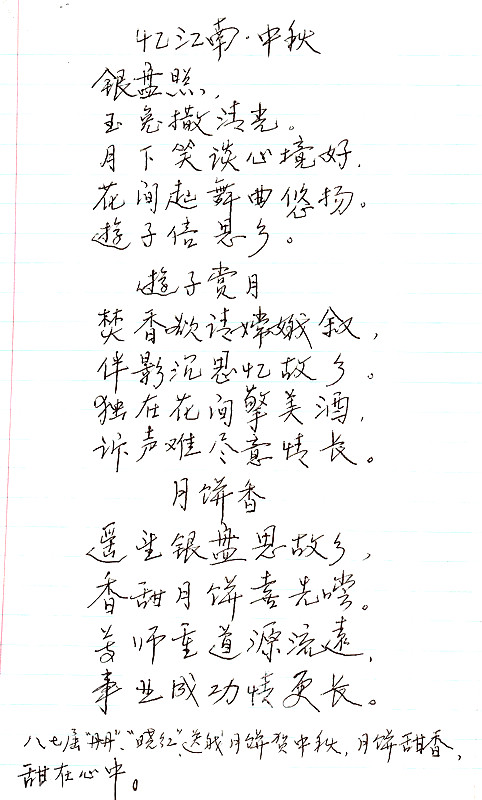 忆江南·中秋
银盘照，
玉兔撒清光。
月下笑谈心境好，
花间起舞曲悠扬。
遊子倍思乡。
遊子赏月
焚香欲请嫦娥叙，
伴影沉思忆故乡。
独在花间擎美酒，
诉声难尽意情长。
月饼香
遥望银盘思故乡，
香甜月饼喜先嚐。
尊师重道源流远，
事业成功情更长。
八七届"丹丹"、"晓红"送我月饼贺中秋，月饼甜香，
甜在心中。